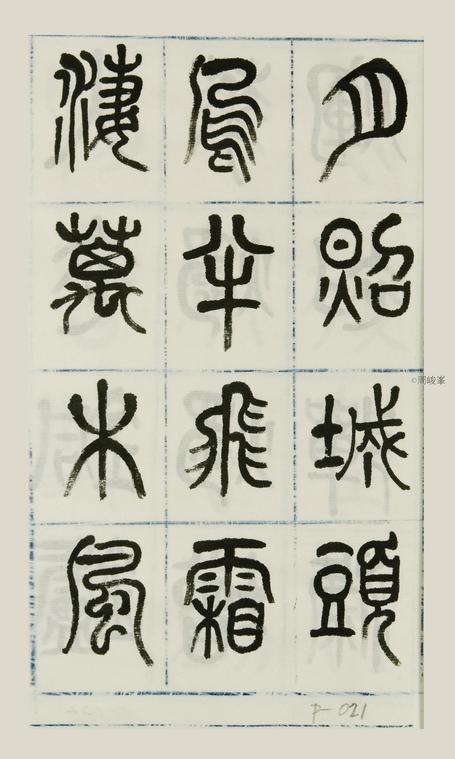 月照城頭
烏半飛霜
淒萬木風
©周峻峯
P-021